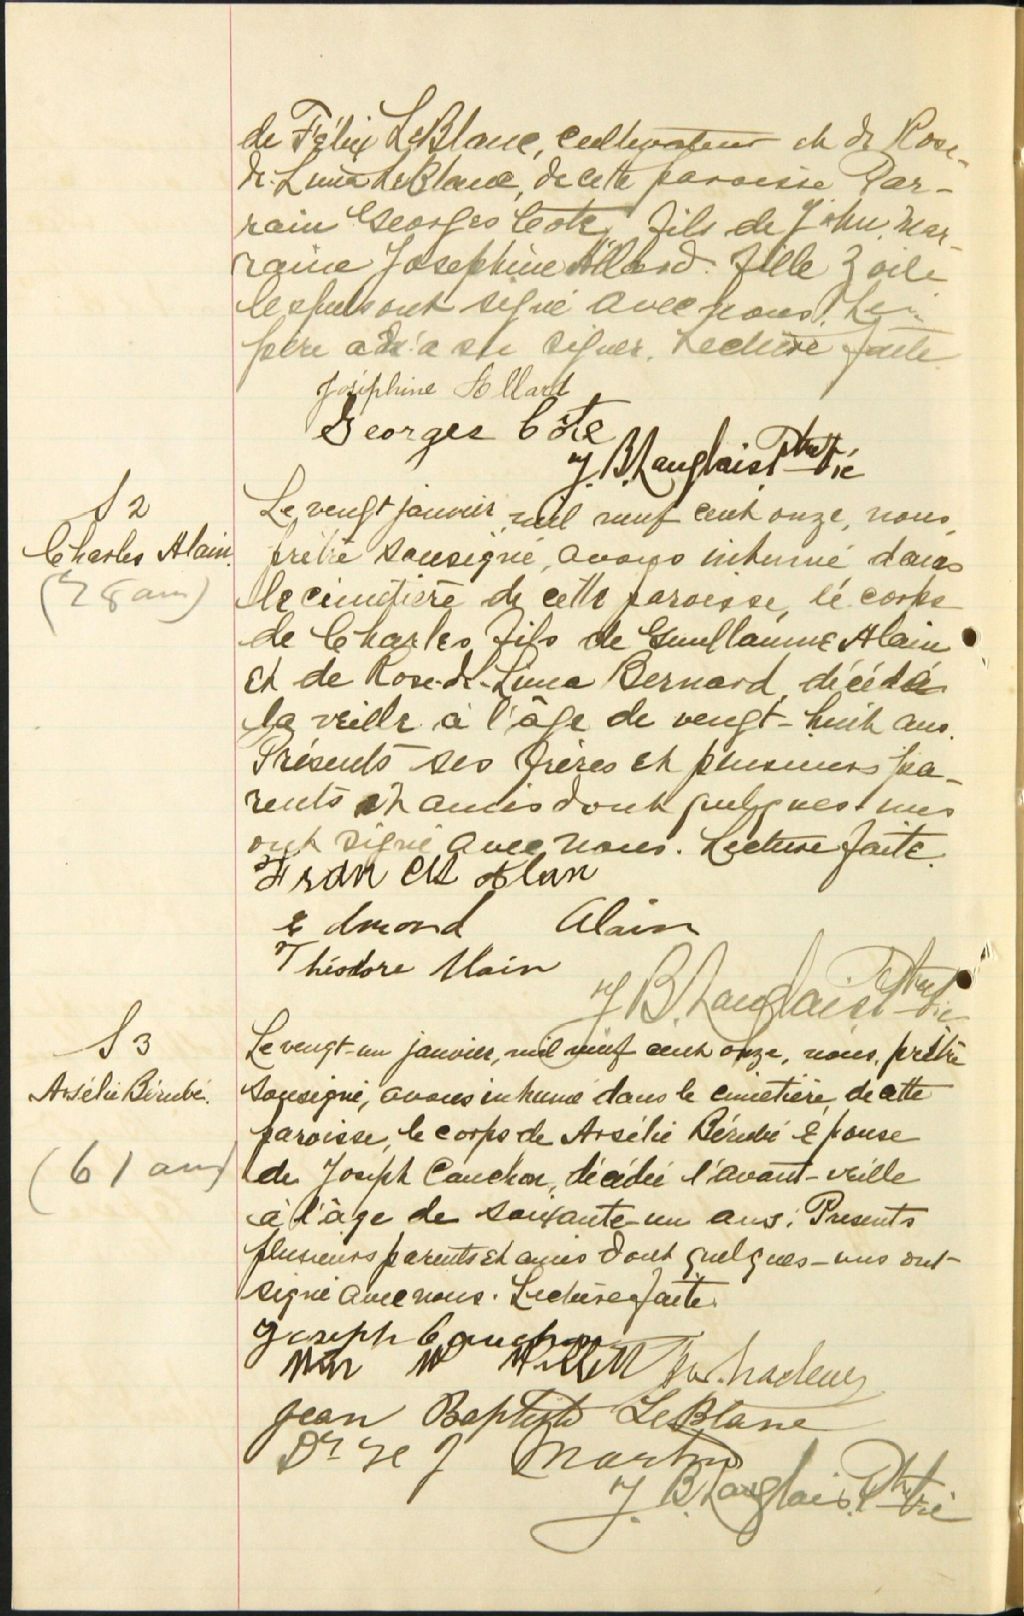 de Félix LeBlanc, cultivateur et de Rose-
de-Lima LeBlanc, de cette paroisse Par-
rain Georges Coté, fils de John, Mar-
raine Josephine Allard. fille Zoile
lesquels ont signé avec nous. Le
père a su signer. Lecture faite.
Joséphine Allard
Georges Côté
J. B. Langlais Ptre Vic
S 2
Charles Alain.
(28 ans)
Le vingt janvier mil neuf cent onze, nous,
prêtre sousigné, avons inhumé dans
le cimitière de cette paroisse, le corps
de Charles, fils de Guillaume Alain
et de Rose-de-Lima Bernard, décédé
la veille à l'âge de vingt-huit ans.
Présents ses frères et plusieurs pa-
rents et amis dont quelques-uns
ont signé avec nous. Lecture faite.
Edmond Alain
Théodore Alain
J. B. Langlais Ptre Vic
S 3
Arsélie Bérubé.
(61 ans)
Le vingt-un janvier, mil neuf cent onze, nous, prêtre
sousigné, avons inhumé dans le cimetière de cette
paroisse, le corps de Arsélie Bérubé épouse
de Joseph Cauchon, décédée l'avant-veille
à l'âge de soixante-un ans. Presents
plusieurs parents et amis dont quelques-uns ont
signé avec nous. Lecture faite.
Joseph Cauchon
Wm W
Jean Baptiste LeBlanc
Dr J Martin
J. B. Langlais Ptre Vic